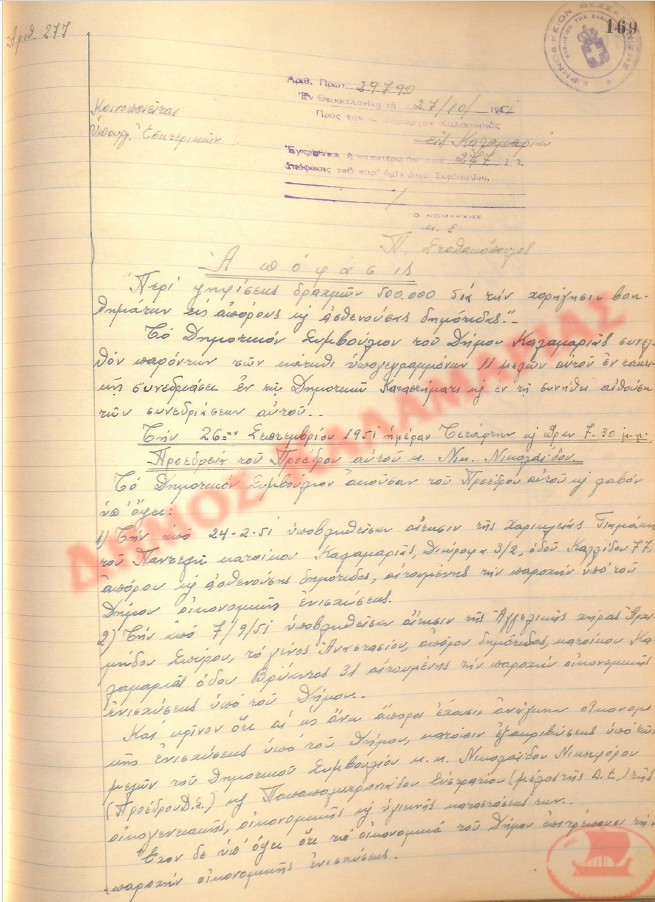 Αριθ. 277
169
Αριθ. Πρωτ. 29790
Ἐν Θεσσαλονίκῃ τῇ 27/10/1951
Πρὸς τὸν κ. Δήμαρχον Καλαμαριᾶς
εἰς Καλαμαριάν
Ἐγκρίνεται ἡ 277
Ο ΝΟΜΑΡΧΗΣ
Κοινοποιεῖται
Ὑπουργ. Ἐσωτερικῶν
Ἀπόφασις
"Περὶ ψηφίσεως δραχμῶν 500.000 διὰ τὴν χορήγησιν βοη-
θημάτων εἰς ἀπόρους κ ἀσθενούσας δημότιδας".-
Τὸ Δημοτικὸν Συμβούλιον τοῦ Δήμου Καλαμαριᾶς συνελ-
θὸν παρόντων τῶν κάτωθι ὑπογεγραμμένων 11 μελῶν αὐτοῦ ἐν τακτι-
κῇ συνεδριάσει ἐν τῷ Δημοτικῷ Καταστήματι κ ἐν τῇ συνήθει αἰθούσῃ
τῶν συνεδριάσεων αὐτοῦ.-
Τὴν 26ην Σεπτεμβρίου 1951 ἡμέραν Τετάρτην κ ὥραν 7.30 μ.μ.
Προεδρείᾳ τοῦ Προέδρου αὐτοῦ κ. Νικ. Νικολαΐδου.
Τὸ Δημοτικὸν Συμβούλιον ἀκοῦσαν τοῦ Προέδρου αὐτοῦ κ λαβὸν
ὑπ' ὄψει:
1) Τὴν ἀπὸ 24-2-51 ὑποβληθεῖσαν αἴτησιν τῆς Χαρικλείας
τοῦ Παντελῆ κατοίκου Καλαμαριᾶς, 3/2, ὁδοῦ 77
ἀπόρου κ ἀσθενούσης δημότιδος, αἰτουμένης τὴν παροχὴν ὑπὸ τοῦ
Δήμου οἰκονομικῆς ἐνισχύσεως.
2) Τὴν ἀπὸ 7/9/51 ὑποβληθεῖσαν αἴτησιν τῆς Ἀγγελικῆς χήρας
Σπύρου, τὸ γένος Ἀναστασίου, ἀπόρου δημότιδος, κατοίκου Κα-
λαμαριᾶς ὁδοῦ 31 αἰτουμένης τὴν παροχὴν οἰκονομικῆς
ἐνισχύσεως ὑπὸ τοῦ Δήμου.-
Καὶ κρῖνον ὅτι αἱ ὡς ἄνω ἄποροι ἔχουσιν ἀνάγκην οἰκονομι-
κῆς ἐνισχύσεως ὑπὸ τοῦ Δήμου, κατόπιν ἐξακριβώσεως ὑπὸ τῶν
μελῶν τοῦ Δημοτικοῦ Συμβουλίου κ.κ. Νικολαΐδου Νικηφόρου
(Προέδρου Δ.Σ.) κ Εὐστρατίου (μέλος τῆς Δ.Ε.) τῆς
οἰκογενειακῆς, οἰκονομικῆς κ ὑγιεινῆς καταστάσεώς των.-
Ἔχον δὲ ὑπ' ὄψει ὅτι τὰ οἰκονομικὰ τοῦ Δήμου ἐπιτρέπουσι τὴν
παροχὴν οἰκονομικῆς ἐνισχύσεως.
ΔΗΜΟΣ ΚΑΛΑΜΑΡΙΑΣ